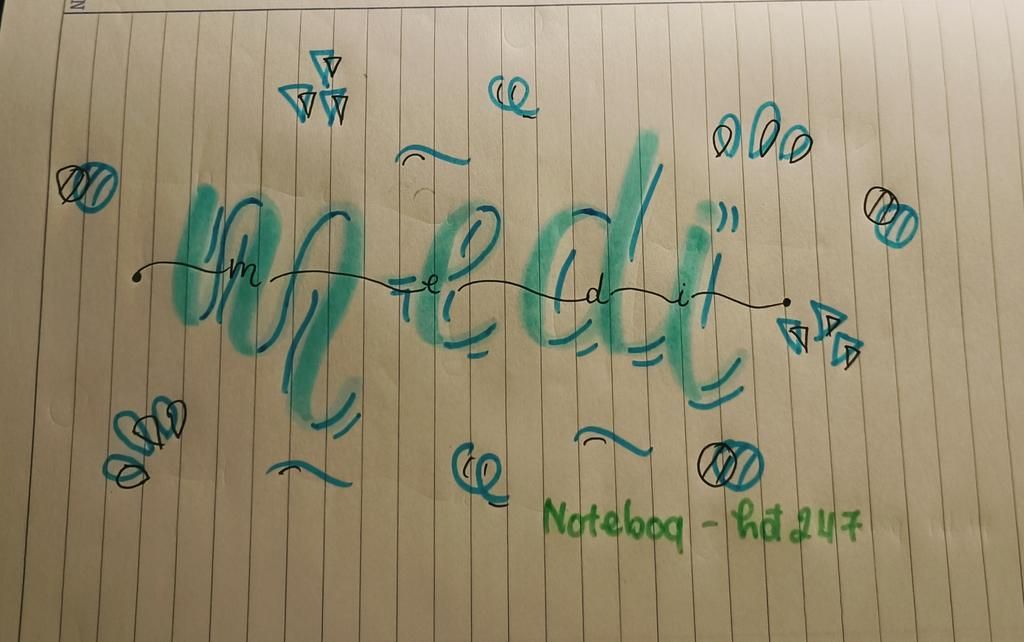 medi
medi
Noteboq - hot 247